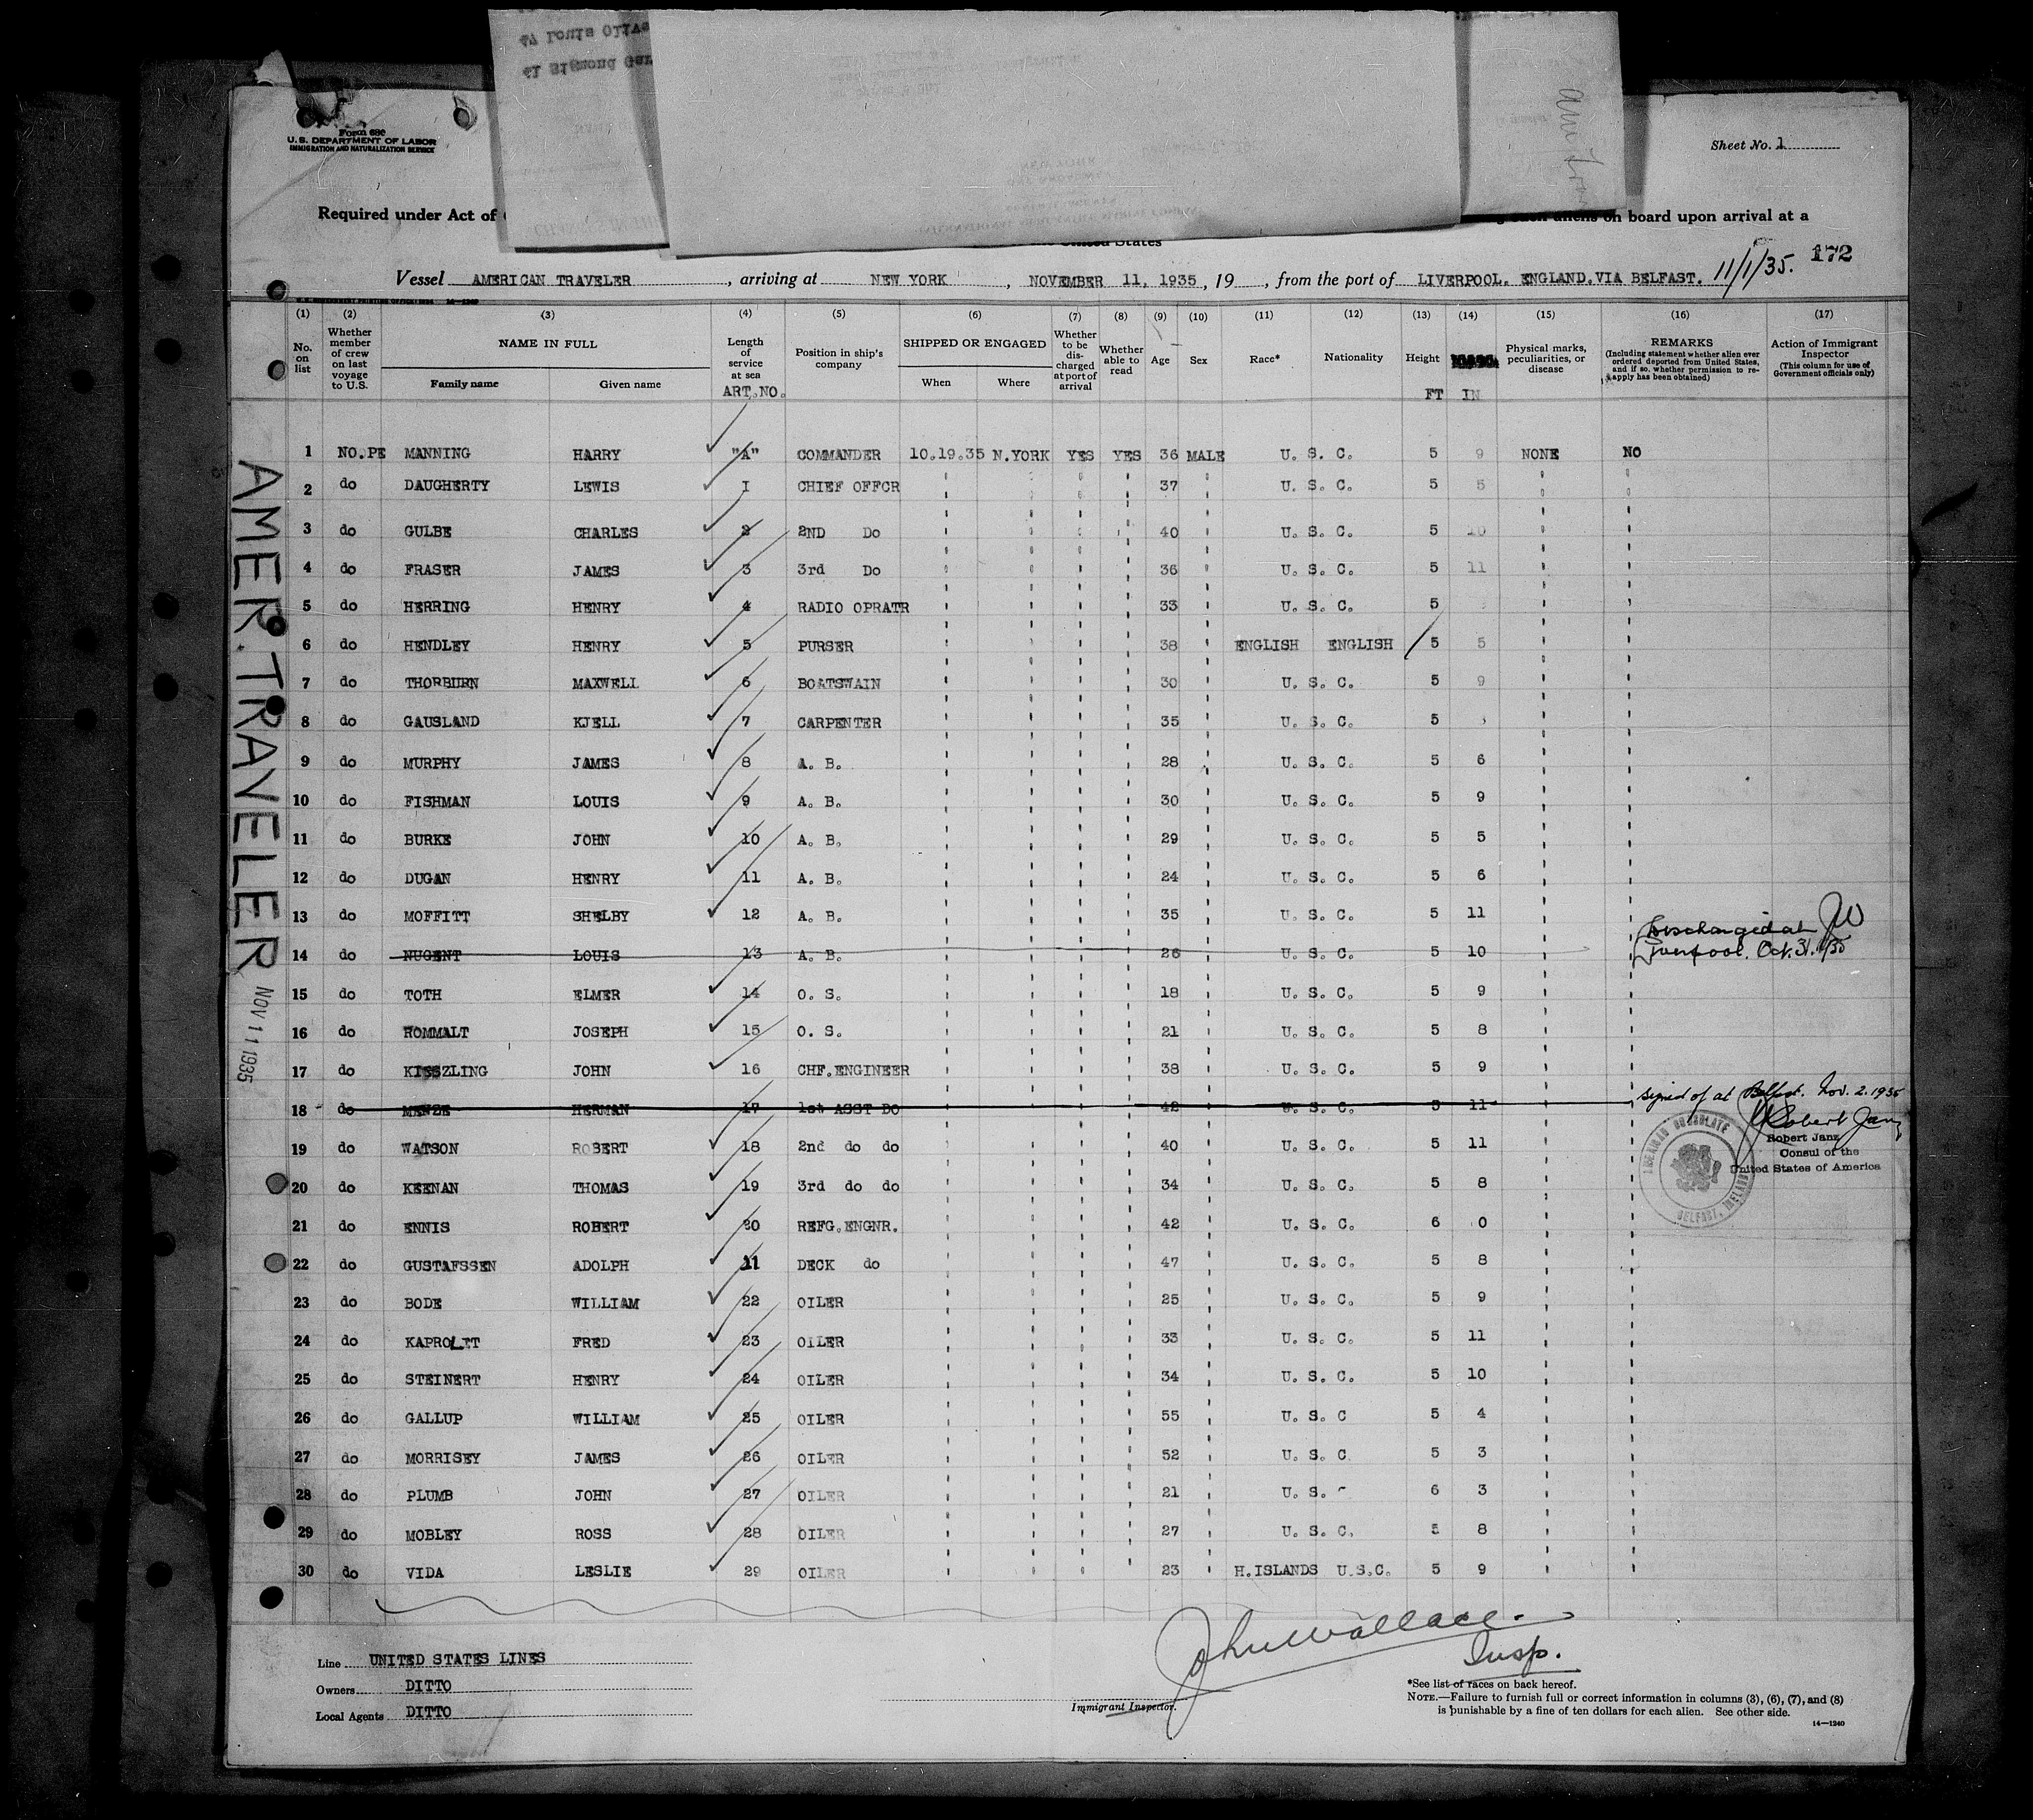 Form 680
U. S. DEPARTMENT OF LABOR
IMMIGRATION AND NATURALIZATION SERVICE
Sheet No. 1
Required under Act of
aliens on board upon arrival at a
United States
172
Vessel AMERICAN TRAVELER, arriving at NEW YORK, NOVEMBER 11, 1935, 19, from the port of LIVERPOOL. ENGLAND. VIA BELFAST. 11/1/35.
(1) (2) (3) (4) (5) (6) (7) (8) (9) (10) (11) (12) (13) (14) (15) (16) (17)
No. on list
Whether member of crew on last voyage to U.S.
NAME IN FULL
Family name Given name
Length of service at sea
ART.NO.
Position in ship's company
SHIPPED OR ENGAGED
When Where
Whether to be discharged at port of arrival
Whether able to read
Age
Sex
Race*
Nationality
Height
FT IN
Physical marks, peculiarities, or disease
REMARKS
(Including statement whether alien ever ordered deported from United States, and if so, whether permission to reapply has been obtained)
Action of Immigrant Inspector
(This column for use of Government officials only)
1 NO.PE MANNING HARRY "A" COMMANDER 10.19.35 N.YORK YES YES 36 MALE U. S. C. 5 9 NONE NO
2 do DAUGHERTY LEWIS I CHIEF OFFCR 37 U. S. C. 5 5
3 do GULBE CHARLES 2 2ND Do 40 U. S. C. 5 10
4 do FRASER JAMES 3 3rd Do 36 U. S. C. 5 11
5 do HERRING HENRY 4 RADIO OPRATR 33 U. S. C. 5
6 do HENDLEY HENRY 5 PURSER 38 ENGLISH ENGLISH 5 5
7 do THORBURN MAXWELL 6 BOATSWAIN 30 U. S. C. 5 9
8 do GAUSLAND KJELL 7 CARPENTER 35 U. S. C. 5
9 do MURPHY JAMES 8 A. B. 28 U. S. C. 5 6
10 do FISHMAN LOUIS 9 A. B. 30 U. S. C. 5 9
11 do BURKE JOHN 10 A. B. 29 U. S. C. 5 5
12 do DUGAN HENRY 11 A. B. 24 U. S. C. 5 6
13 do MOFFITT SHELBY 12 A. B. 35 U. S. C. 5 11
14 do NUGENT LOUIS 13 A. B. 26 U. S. C. 5 10 Discharged at Liverpool. Oct. 31. 1935 JW
15 do TOTH ELMER 14 O. S. 18 U. S. C. 5 9
16 do ROMMALT JOSEPH 15 O. S. 21 U. S. C. 5 8
17 do KISSZLING JOHN 16 CHF.ENGINEER 38 U. S. C. 5 9
18 do MENZE HERMAN 17 1st ASST DO 42 U. S. C. 5 11 signed of at Belfast. Nov. 2. 1935
Robert Janz
Robert Janz
Consul of the
United States of America
AMERICAN CONSULATE
BELFAST, IRELAND
19 do WATSON ROBERT 18 2nd do do 40 U. S. C. 5 11
20 do KEENAN THOMAS 19 3rd do do 34 U. S. C. 5 8
21 do ENNIS ROBERT 20 REFG.ENGNR. 42 U. S. C. 6 0
22 do GUSTAFSSEN ADOLPH 11 DECK do 47 U. S. C. 5 8
23 do BODE WILLIAM 22 OILER 25 U. S. C. 5 9
24 do KAPROLIT FRED 23 OILER 33 U. S. C. 5 11
25 do STEINERT HENRY 24 OILER 34 U. S. C. 5 10
26 do GALLUP WILLIAM 25 OILER 55 U. S. C 5 4
27 do MORRISEY JAMES 26 OILER 52 U. S. C 5 3
28 do PLUMB JOHN 27 OILER 21 U. S. 6 3
29 do MOBLEY ROSS 28 OILER 27 U. S. C. 5 8
30 do VIDA LESLIE 29 OILER 23 H.ISLANDS U.S.C. 5 9
AMER. TRAVELER NOV 11 1935
Line UNITED STATES LINES
Owners DITTO
Local Agents DITTO
John Wallace
Insp.
Immigrant Inspector.
*See list of races on back hereof.
NOTE.—Failure to furnish full or correct information in columns (3), (6), (7), and (8)
is punishable by a fine of ten dollars for each alien. See other side.
14—1240